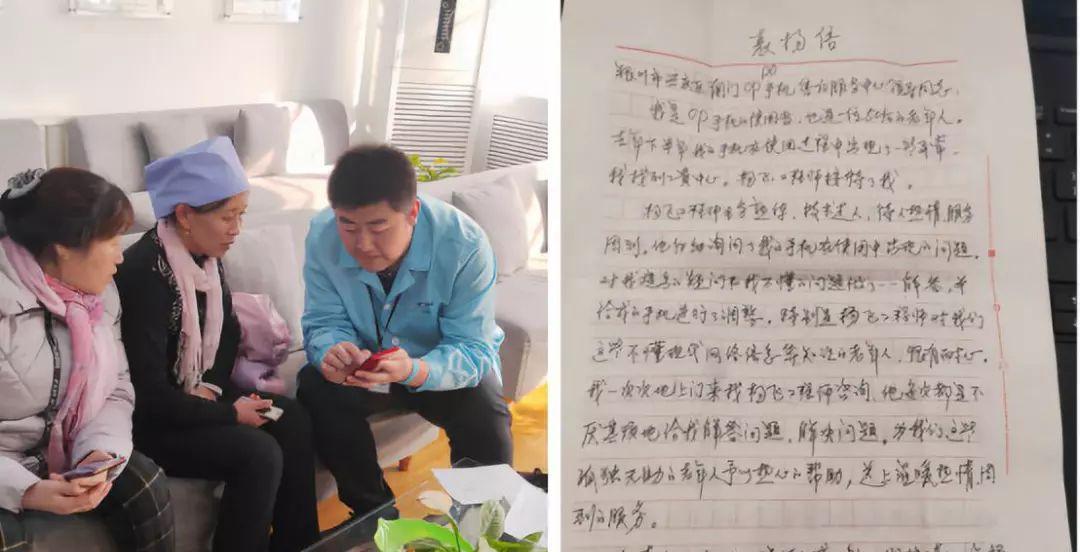 表扬信
银川市兴庆区南门OPPO手机售后服务中心领导同志:
我是OP手机的使用者,也是一位的老年人。
去年下半年我的手机在使用过程中出现了一些异常,
我找到了贵中心。杨飞工程师接待了我。
杨飞工程师业务熟练,技术过人,待人热情,服务
周到。他仔细询问了我的手机在使用中出现的问题,
对我提出的疑问和我不懂的问题做了一一解答,并
给我的手机进行了调整。特别是杨飞工程师对我们
这些不懂现代网络信息等知识的老年人,很有耐心。
我一次次地上门来找杨飞工程师咨询,他每次都是不
厌其烦地给我解答问题,解决问题。为我们这些
孤独无助的老年人予以热心的帮助,送上温暖热情周
到的服务。